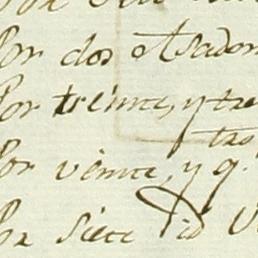 Por dos Asador
Por treinta, y tre
tas
Por veinte, y q.
Por siete id